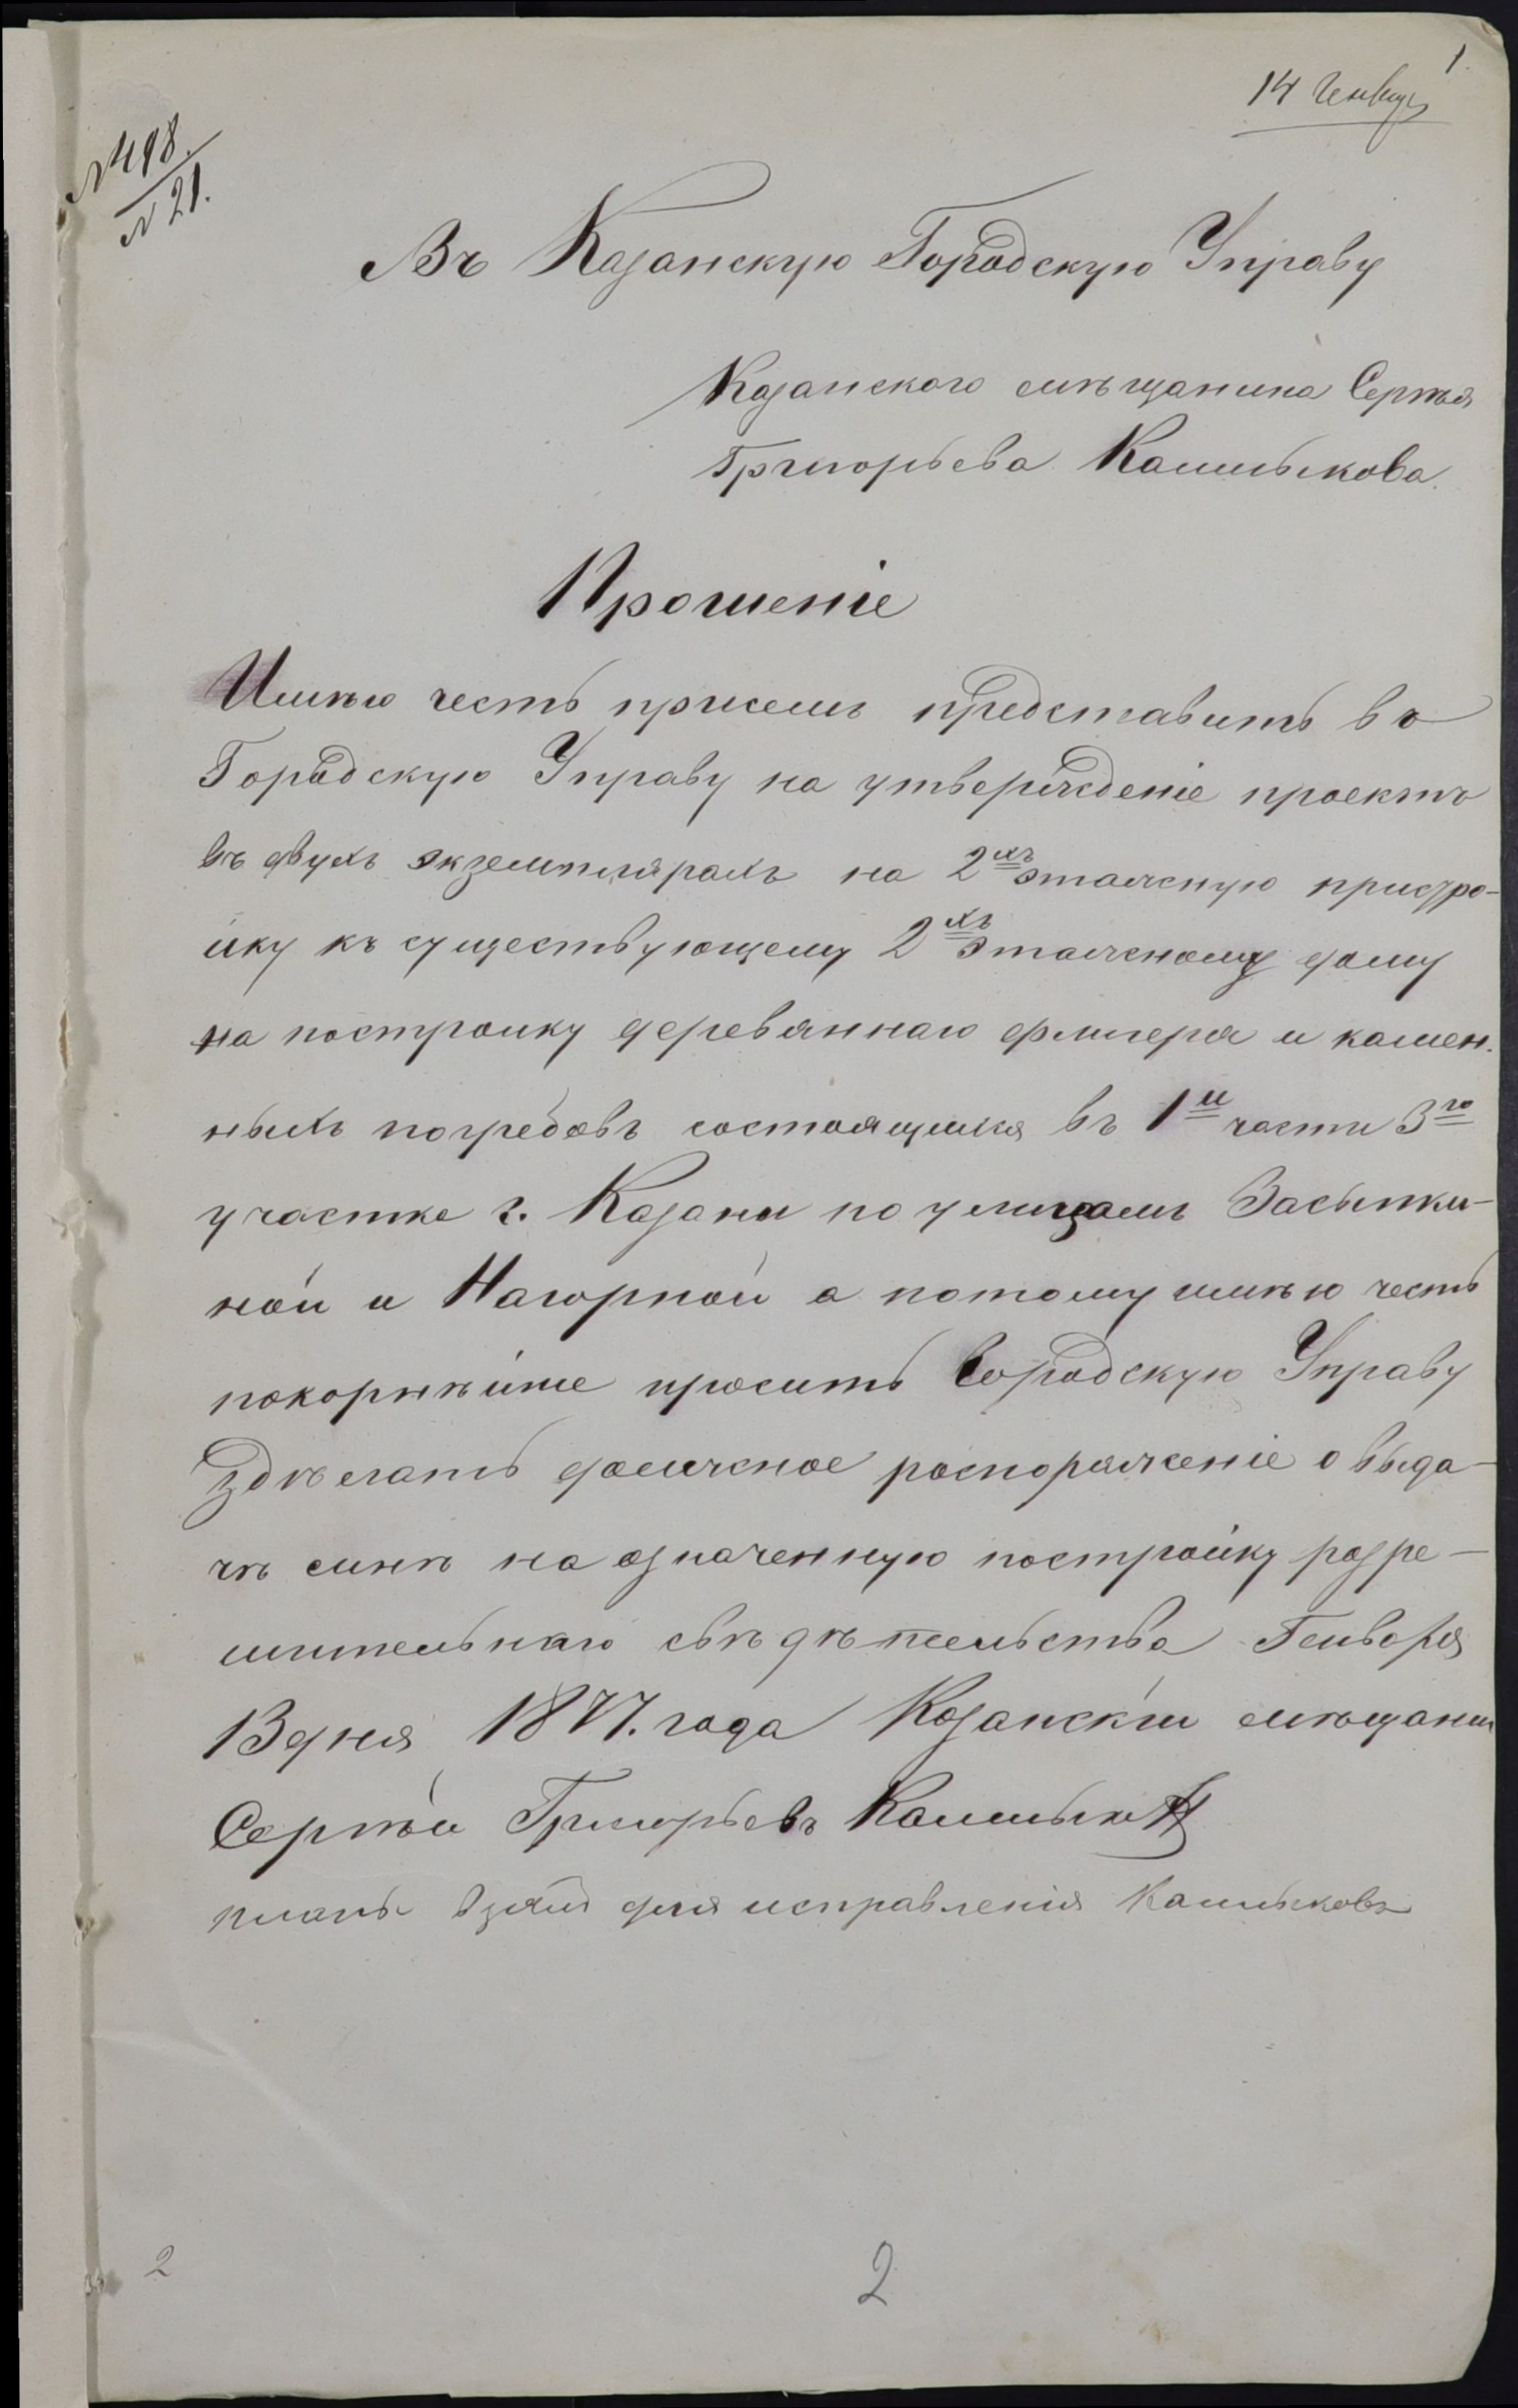 1.
14 Генваря
№ 498.
№ 21.
Въ Казанскую Городскую Управу
Казанского мѣщанина Сергѣя
Григорьева Калмыкова.
Прошеніе
Имѣю честь присемъ представить въ
Городскую Управу на утвержденіе проектъ
въ двухъ экземплярахъ на 2хъ этажную пристро-
йку къ существующему 2хъ этажному дому
на постройку деревяннаго флигеля и камен-
ныхъ погребовъ состоящихся въ 1й части 3го
участка г. Казани по улицамъ Засыпки-
ной и Нагорной а потому имѣю честь
покорнѣйше просить Городскую Управу
здѣлать должное распоряженіе о выда-
чѣ мнѣ на означенную постройку разре-
шительнаго свѣдѣтельства Генваря
13 дня 1877. года Казанскій мѣщанин
Сергѣй Григорьевъ Калмыков
планъ взялъ для исправленія Калмыковъ
2
2